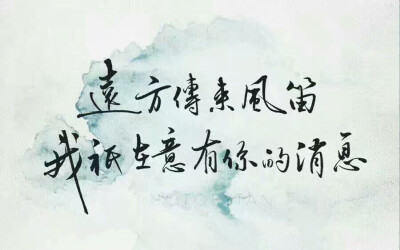 遠方傳來風笛
我祇在意有你的消息